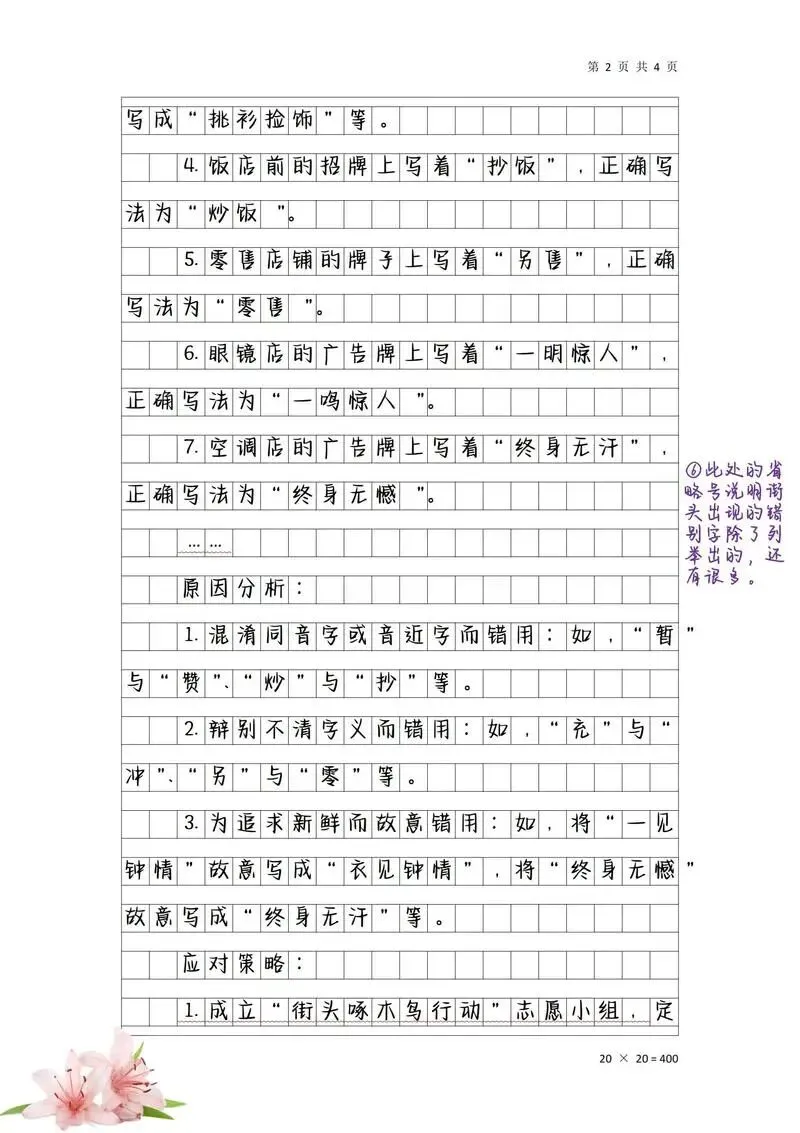 第 2 页 共 4 页
写成“挑衫捡饰”等。
4. 饭店前的招牌上写着“抄饭”，正确写
法为“炒饭”。
5. 零售店铺的牌子上写着“另售”，正确
写法为“零售”。
6. 眼镜店的广告牌上写着“一明惊人”，
正确写法为“一鸣惊人”。
7. 空调店的广告牌上写着“终身无汗”，
正确写法为“终身无憾”。
……
原因分析：
1. 混淆同音字或音近字而错用：如，“暂”
与“赞”、“炒”与“抄”等。
2. 辩别不清字义而错用：如，“充”与“
冲”、“另”与“零”等。
3. 为追求新鲜而故意错用：如，将“一见
钟情”故意写成“衣见钟情”，将“终身无憾”
故意写成“终身无汗”等。
应对策略：
1. 成立“街头啄木鸟行动”志愿小组，定
⑥此处的省
略号说明街
头出现的错
别字除了列
举出的，还
有很多。
20 × 20 = 400